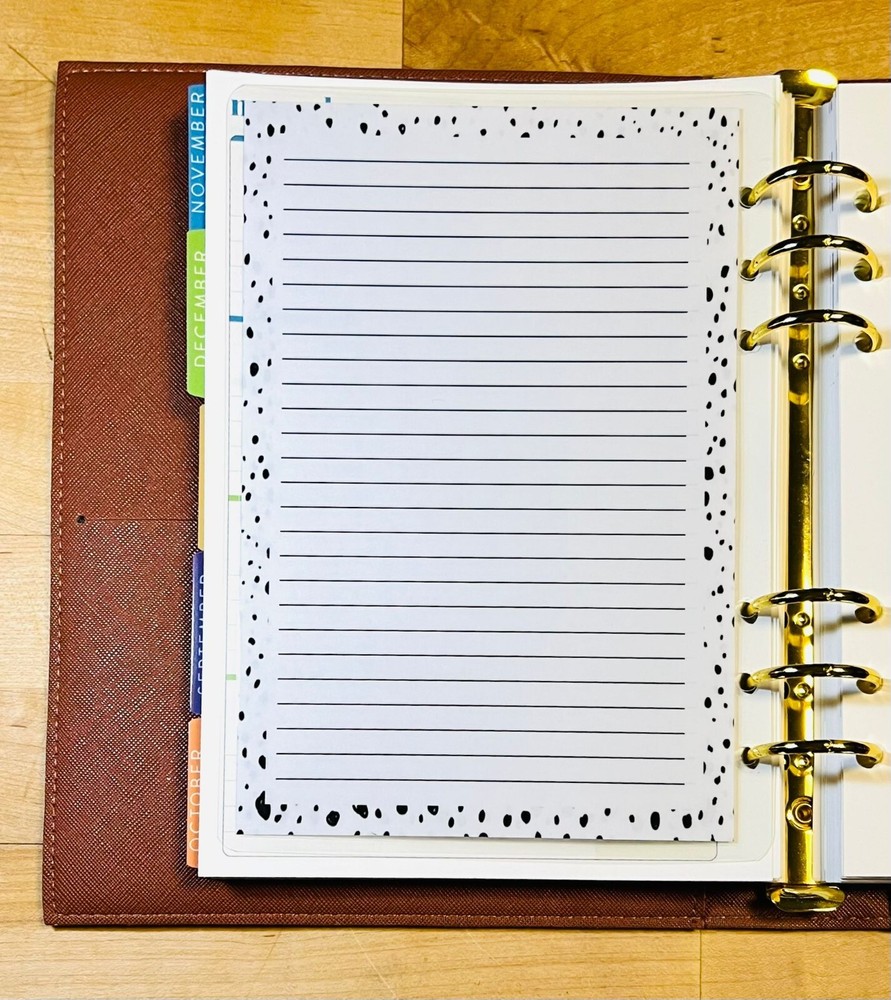 NOVEMBER
DECEMBER
SEPTEMBER
OCTOBER